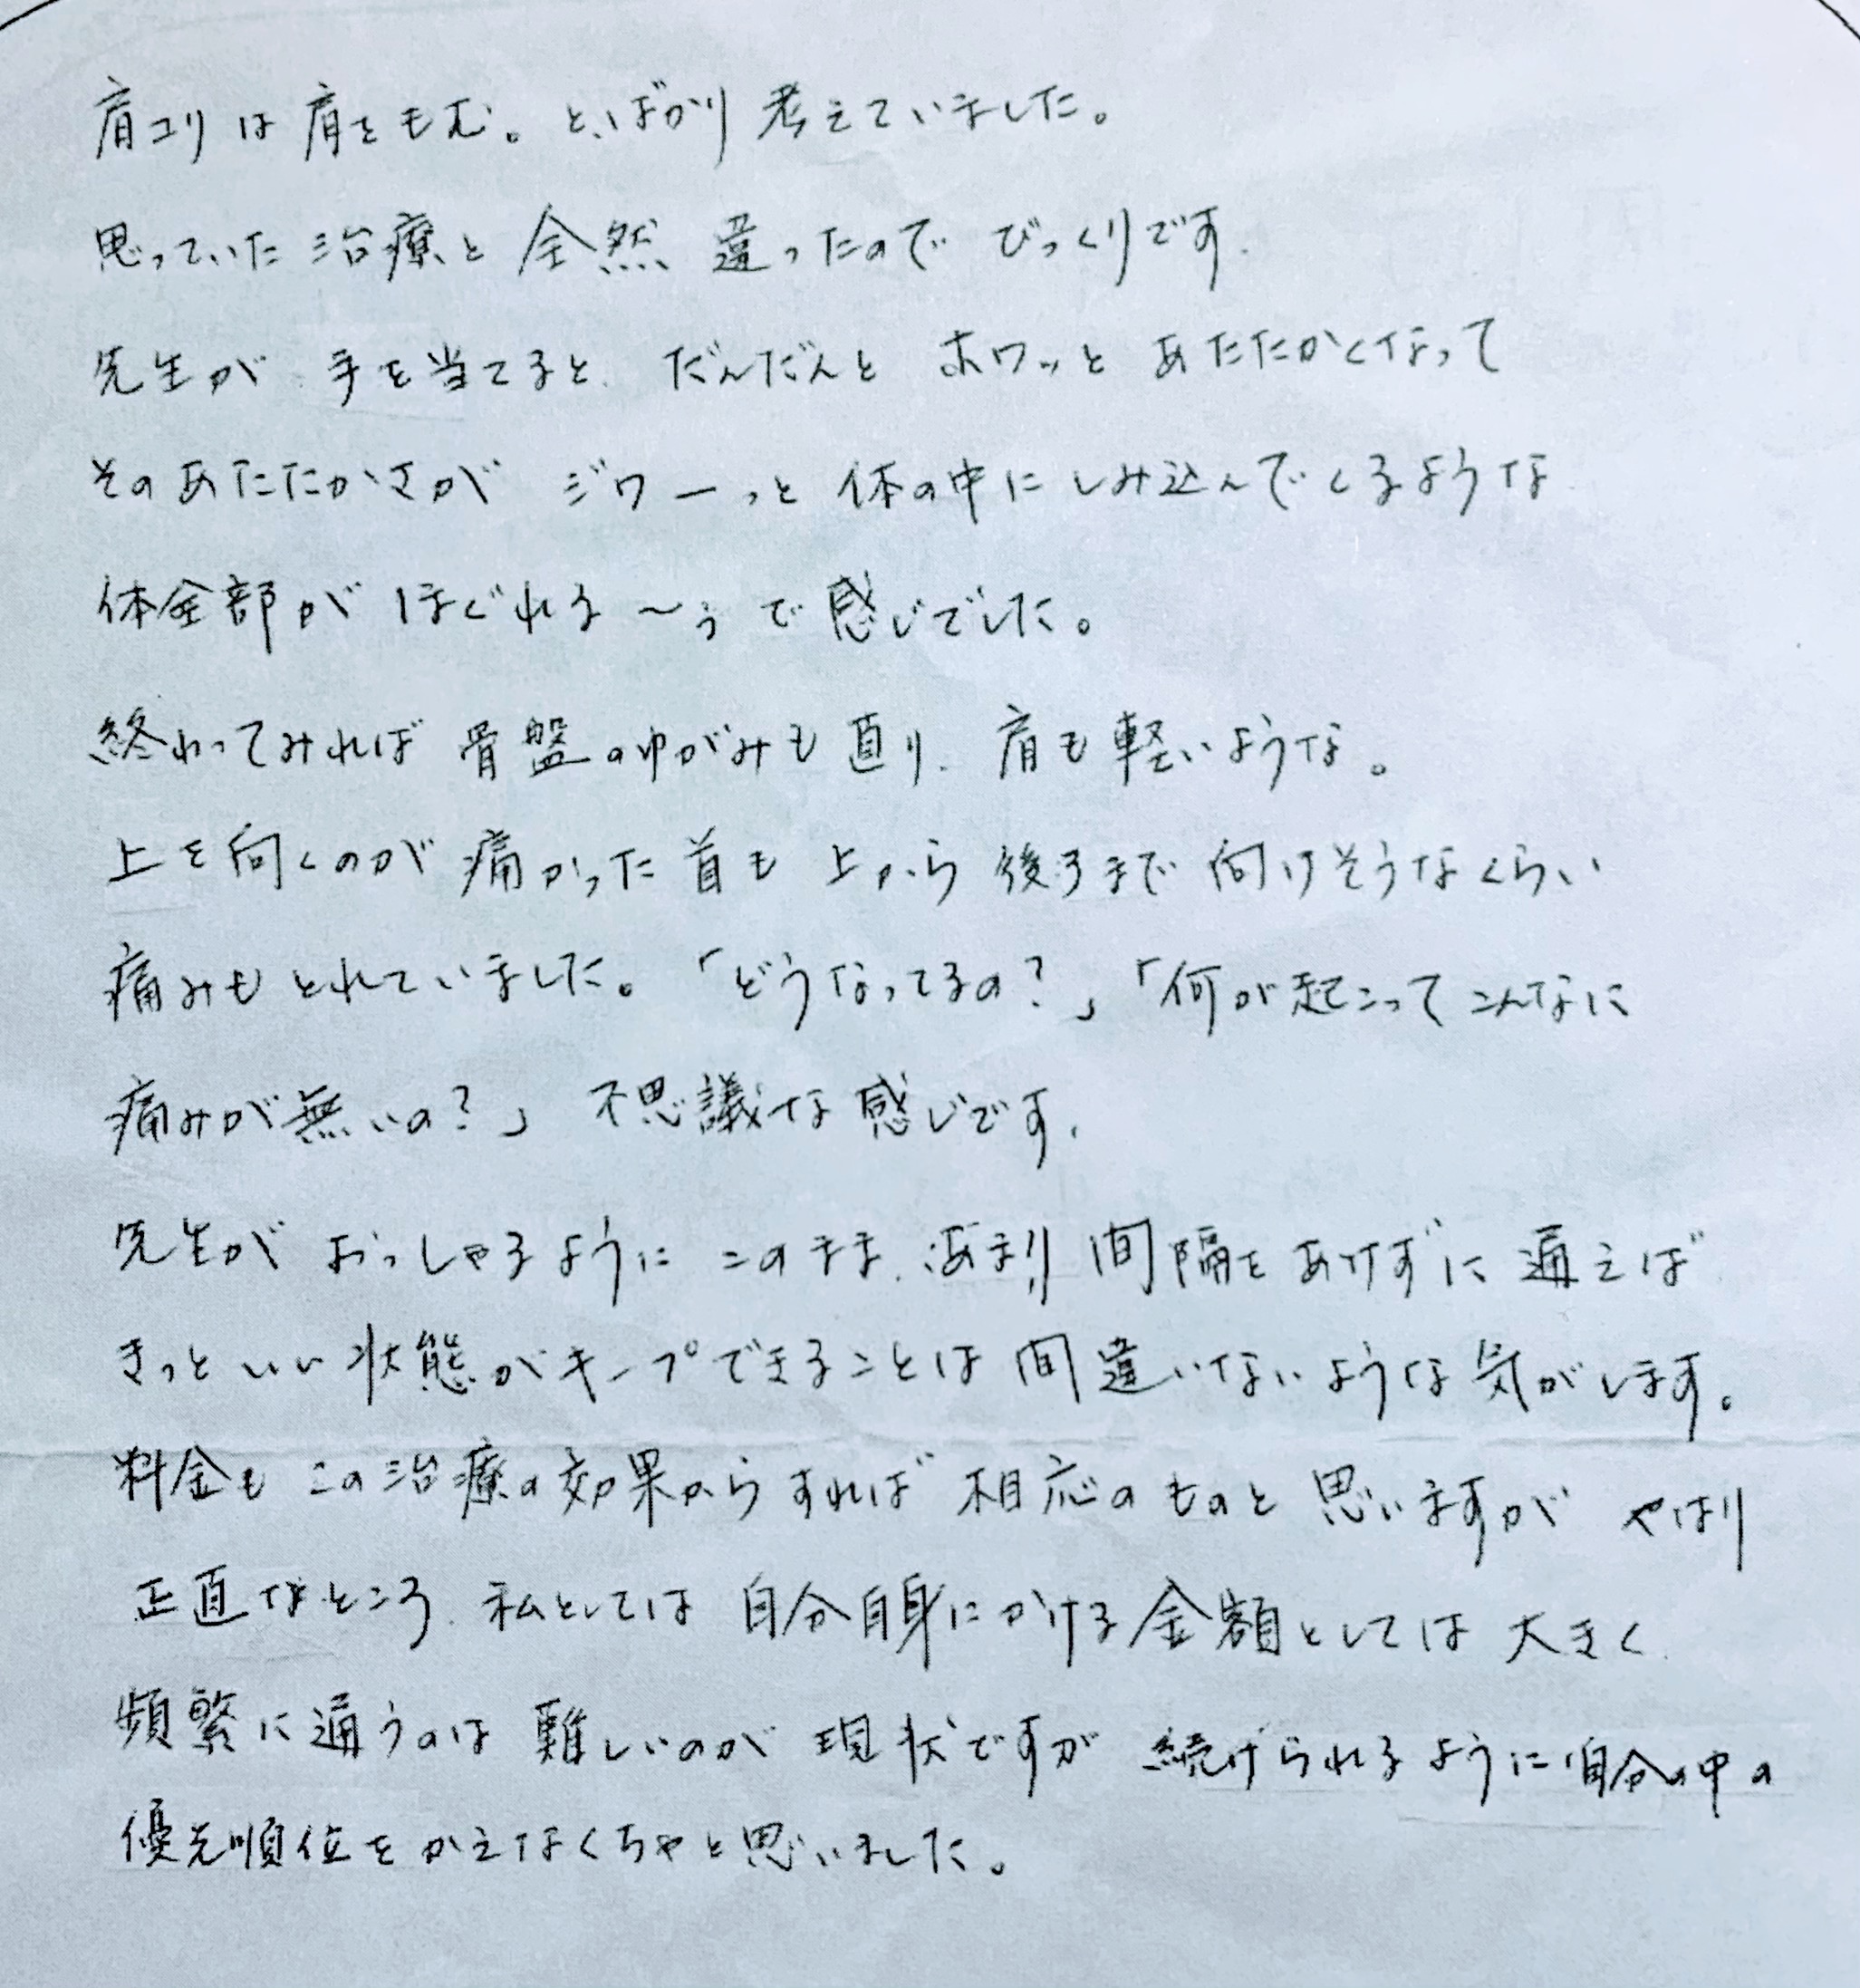 肩コリは肩をもむ。とばかり考えていました。
思っていた治療と全然違ったのでびっくりです。
先生が手を当てると、だんだんとホワッとあたたかくなって
そのあたたかさがジワーっと体の中にしみ込んでくるような
体全部がほぐれる〜ぅで感じでした。
終わってみれば骨盤のゆがみも直り、肩も軽いような。
上を向くのが痛かった首も上から後ろまで向けそうなくらい
痛みもとれていました。「どうなってるの?」「何が起こってこんなに
痛みが無いの?」不思議な感じです。
先生がおっしゃるようにこのまま、あまり間隔をあけずに通えば
きっといい状態がキープできることは間違いないような気がします。
料金もこの治療の効果からすれば相応のものと思いますがやはり
正直なところ、私としては自分自身にかける金額としては大きく
頻繁に通うのは難しいのが現状ですが続けられるように自分の中の
優先順位をかえなくちゃと思いました。